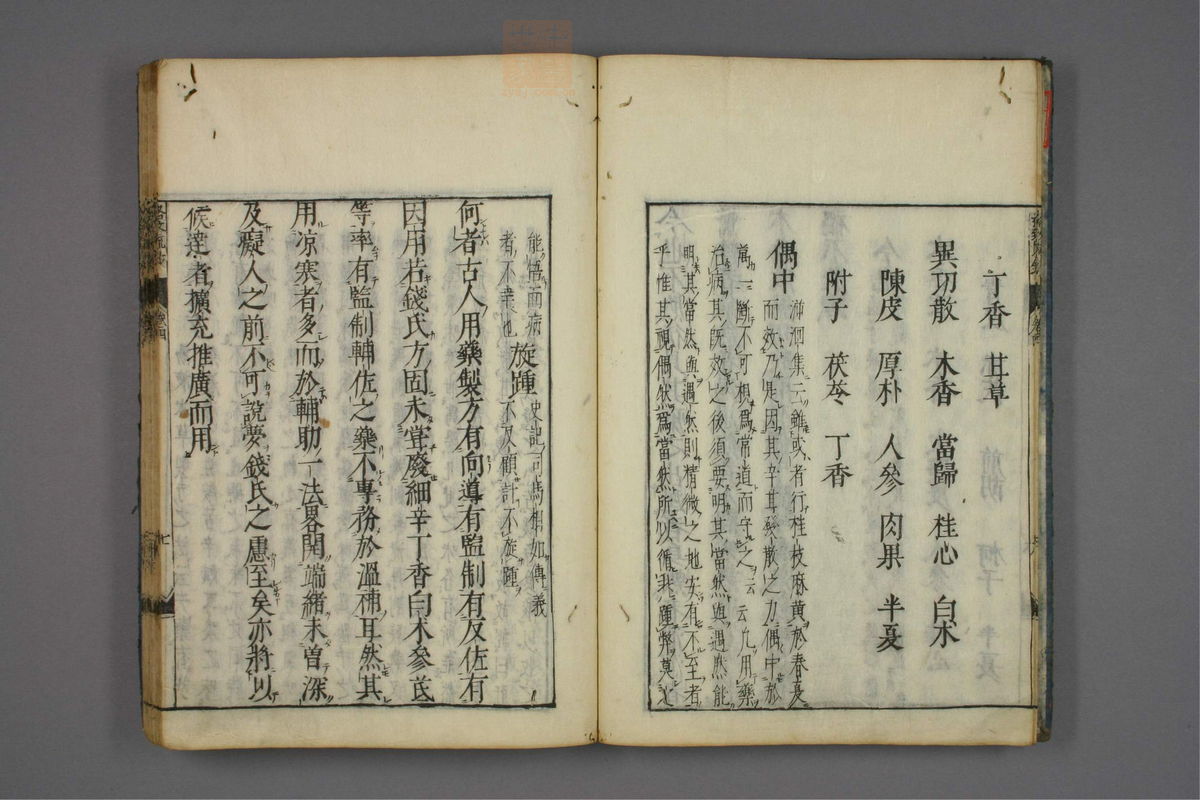 丁香 甘草
異功散 木香 當歸 桂心 白朮
陳皮 厚朴 人參 肉果 半夏
附子 茯苓 丁香
偶中
泝洄集云雖或者行桂枝麻黃於春夏
而效乃是因其辛甘發散之力偶中於
萬一斷不可視爲常道而守之云云凡用藥
治病其既效之後須要明其當然與遇然能
明其當然與遇然則精微之地安有不至者
乎惟其視偶然爲當然所以循非踵弊莫之
能悟而病
者不幸也
旋踵
史記司馬相如傳義
不及顧計不旋踵
何者古人用藥製方有向導有監制有反佐有
因用若錢氏方固未甞廢細辛丁香白朮參茋
等率有監制輔佐之藥不專務於溫補耳然其
用凉寒者多而於輔助一法畧開端緒未曽深
及癡人之前不可說夢錢氏之慮至矣亦將以
俟達者擴充推廣而用
卷四
七